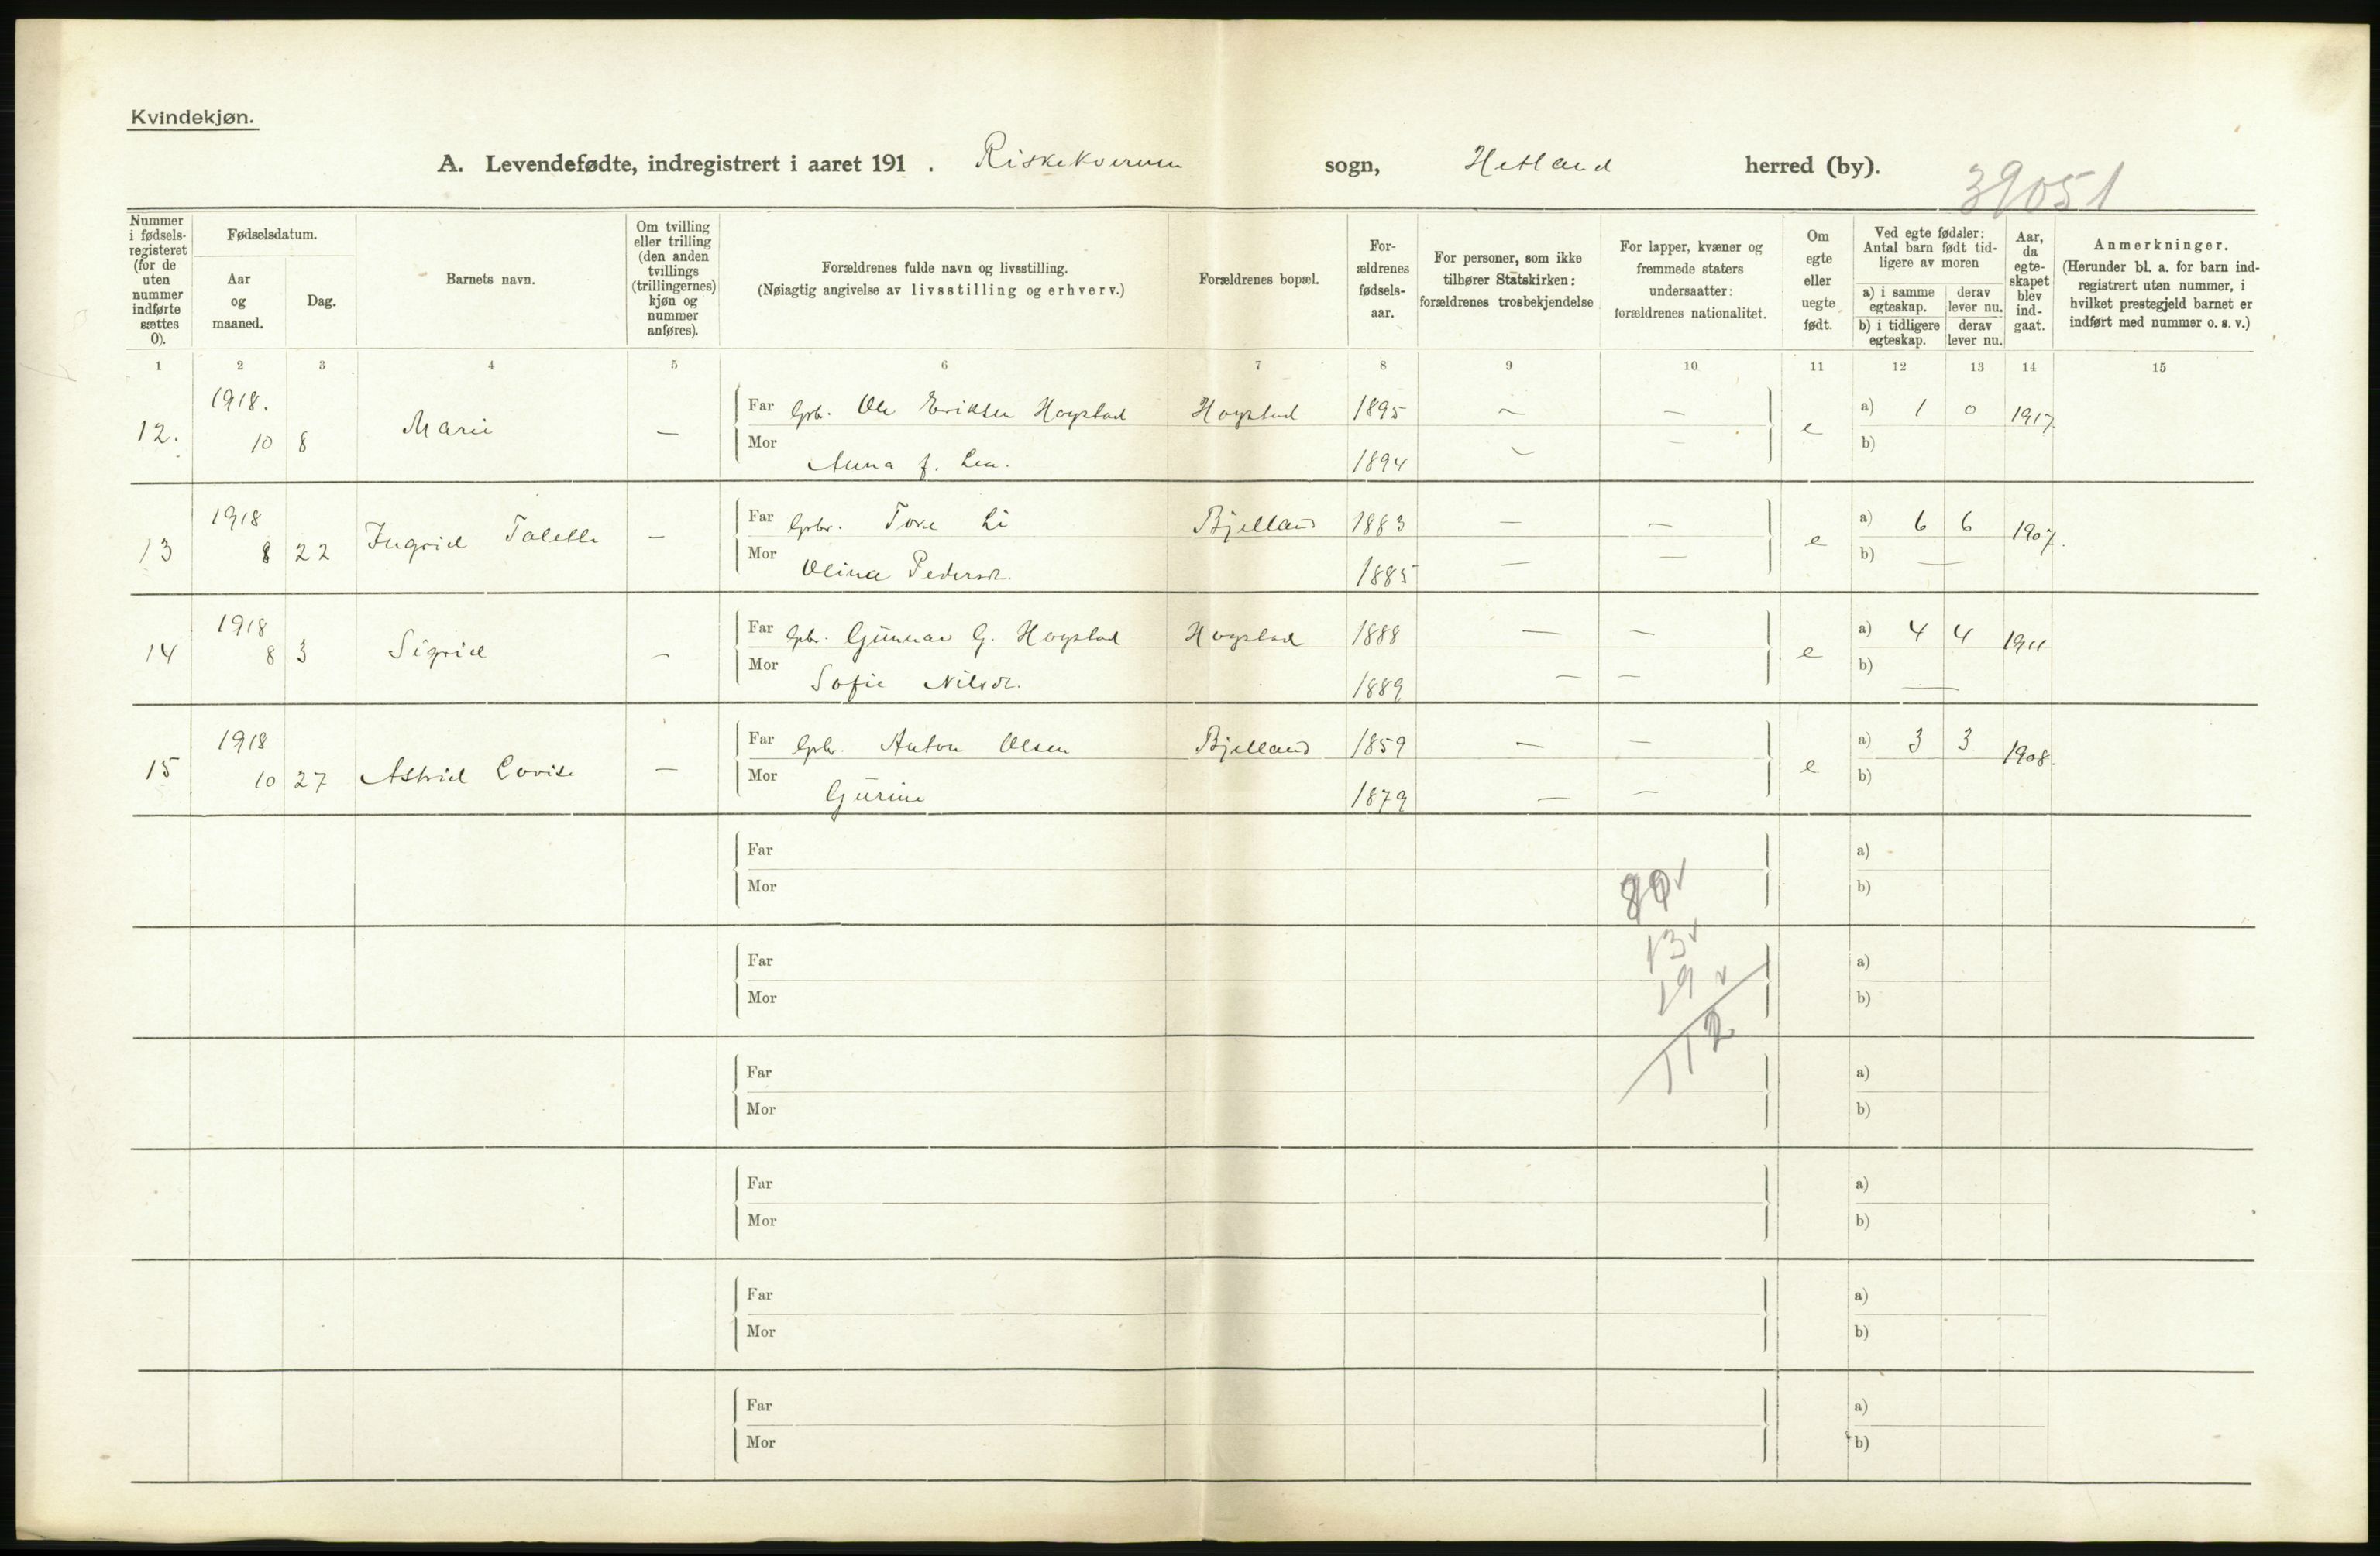 Kvindekjøn.
A. Levendefødte, indregistrert i aaret 191 . Riskekverven sogn, Hetland herred (by).
39051
Nummer i fødselsregisteret (for de uten nummer indførte sættes 0).
Fødselsdatum.
Aar og maaned.
Dag.
Barnets navn.
Om tvilling eller trilling (den anden tvillings (trillingernes) kjøn og nummer anføres).
Forældrenes fulde navn og livsstilling.
(Nøiagtig angivelse av livsstilling og erhverv.)
Forældrenes bopæl.
Forældrenes fødselsaar.
For personer, som ikke tilhører Statskirken: forældrenes trosbekjendelse
For lapper, kvæner og fremmede staters undersaatter: forældrenes nationalitet.
Om egte eller uegte født.
Ved egte fødsler: Antal barn født tidligere av moren
a) i samme egteskap. derav lever nu.
b) i tidligere egteskap. derav lever nu.
Aar, da egteskapet blev indgaat.
Anmerkninger.
(Herunder bl. a. for barn indregistrert uten nummer, i hvilket prestegjeld barnet er indført med nummer o. s. v.)
1 2 3 4 5 6 7 8 9 10 11 12 13 14 15
1918.
12. 10 8 Marie — Far Grb. Ole Eriksen Hogstad Hogstad 1895 — — e a) 1 0 1917.
Mor Anna f. Lea. 1894 — — b)
1918
13 8 22 Ingrid Talette — Far Grbr. Tore Li Bjelland 1883 — — e a) 6 6 1907.
Mor Olina Pedersd. 1885 — — b) —
1918
14 8 3 Sigrid — Far Gbr. Gunnar G. Hogstad Hogstad 1888 — — e a) 4 4 1911
Mor Sofie Nilsd. 1889 — — b) —
1918
15 10 27 Astrid Lovise — Far Grbr. Anton Olsen Bjelland 1859 — — e a) 3 3 1908.
Mor Gurine 1879 — — b)
Far a)
Mor 80 b)
13
Far a)
19
Mor b)
112
Far a)
Mor b)
Far a)
Mor b)
Far a)
Mor b)
Far a)
Mor b)